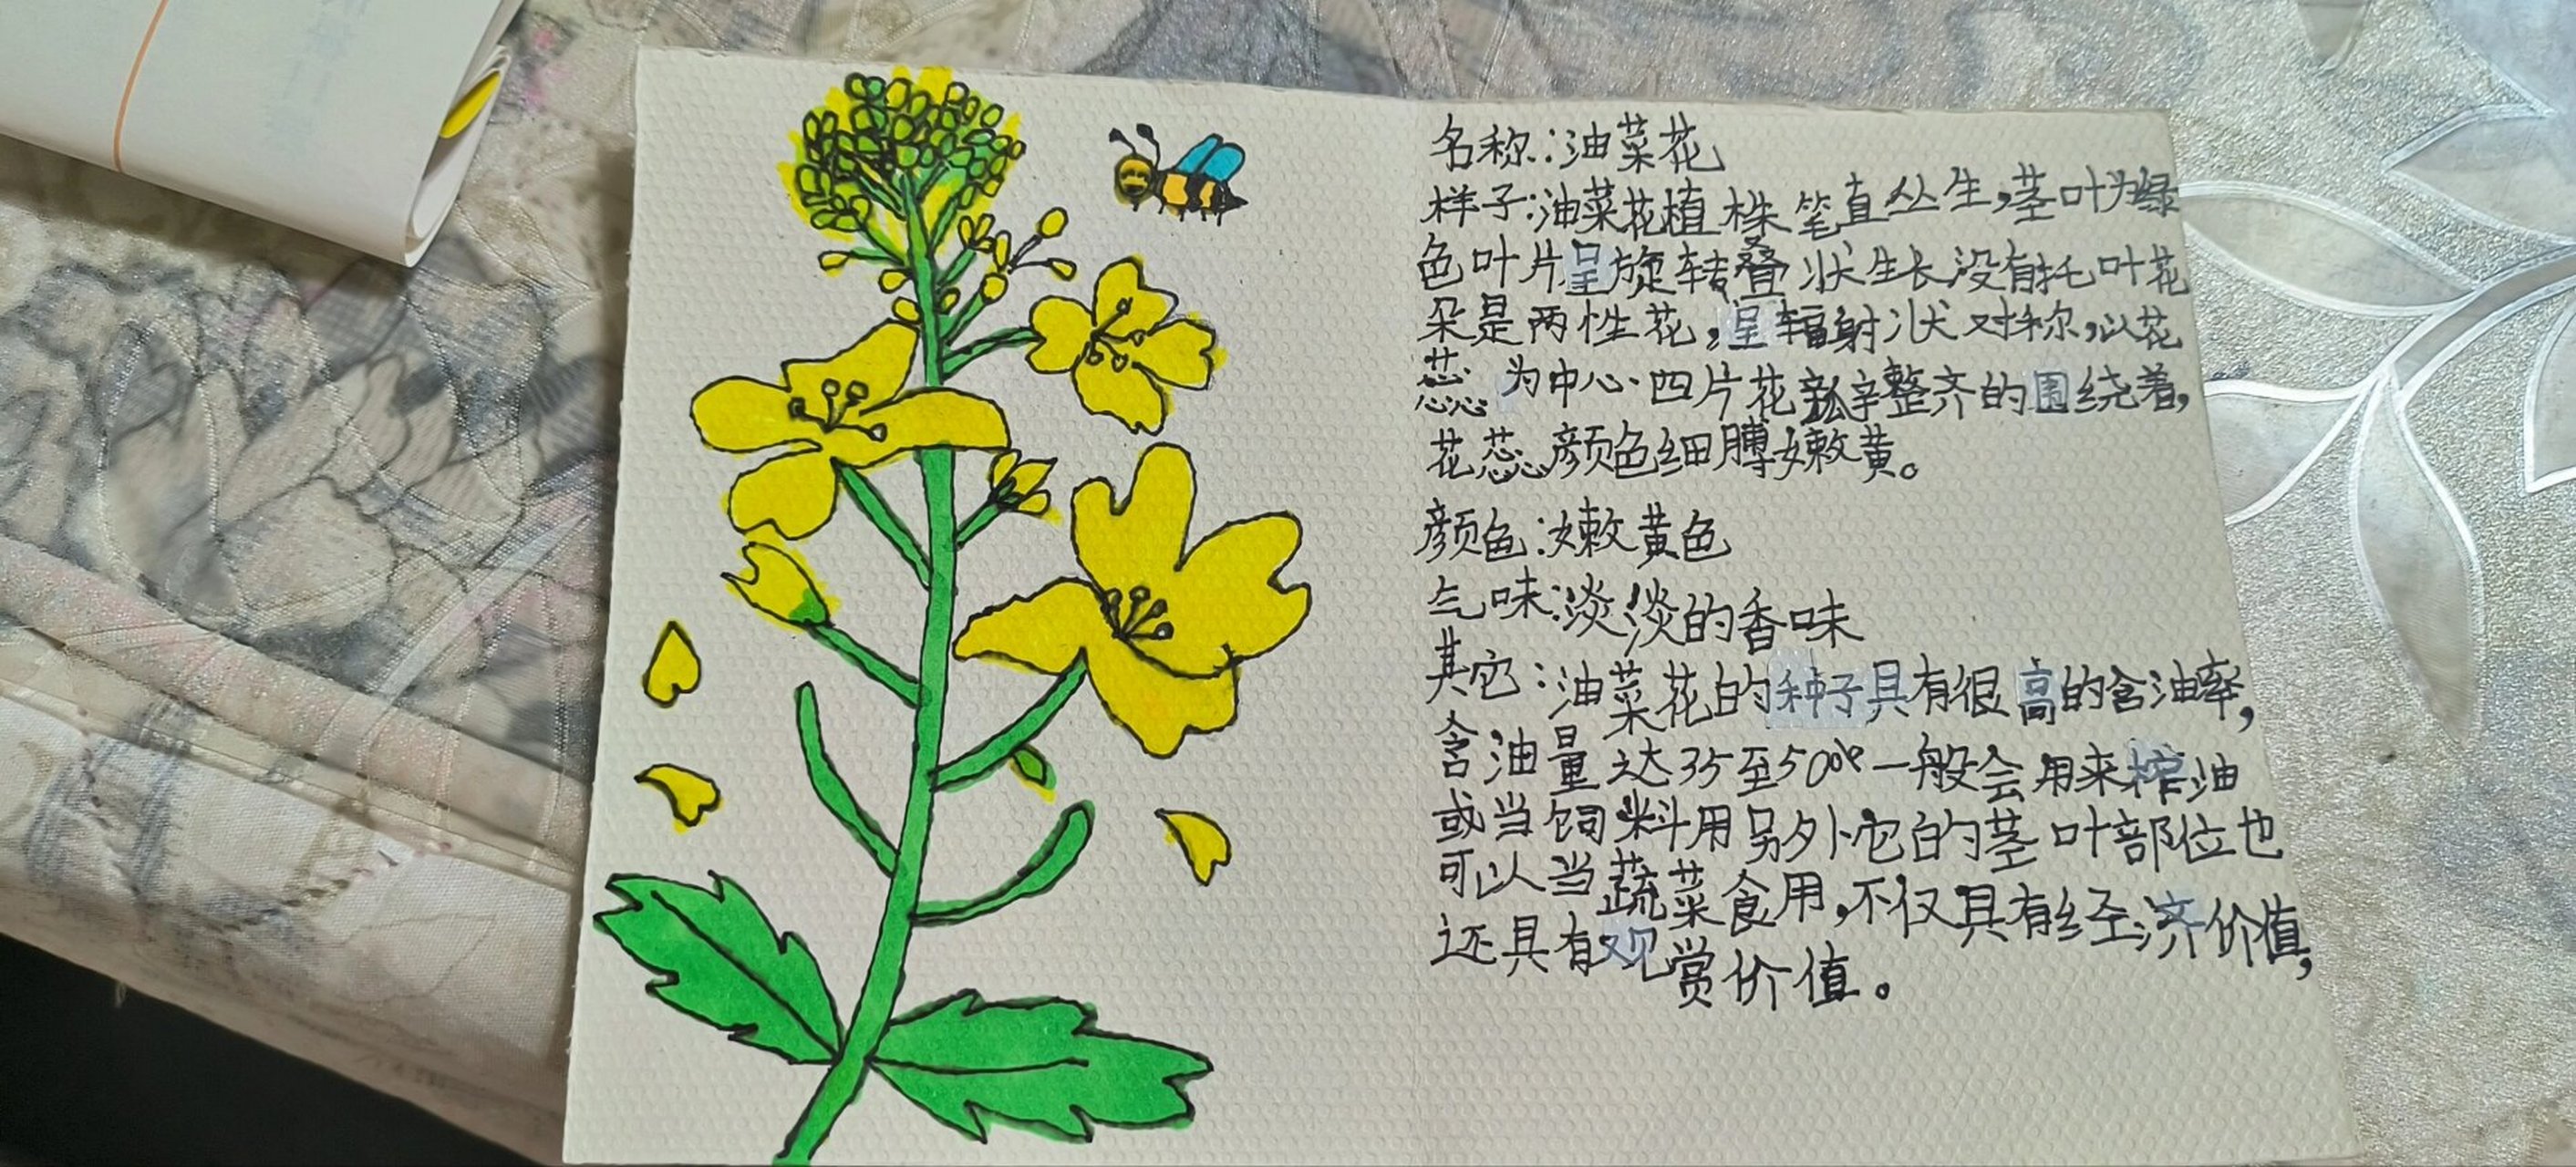 名称:油菜花
样子:油菜花植株笔直丛生,茎叶为绿
色叶片呈旋转叠状生长没有托叶花
朵是两性花,呈辐射状对称,以花
蕊为中心.四片花瓣整齐的围绕着,
花蕊颜色细腻嫩黄。
颜色:嫩黄色
气味:淡淡的香味
其它:油菜花的种子具有很高的含油率,
含油量达35至50%一般会用来榨油
或当饲料用另外它的茎叶部位也
可以当蔬菜食用,不仅具有经济价值,
还具有观赏价值。